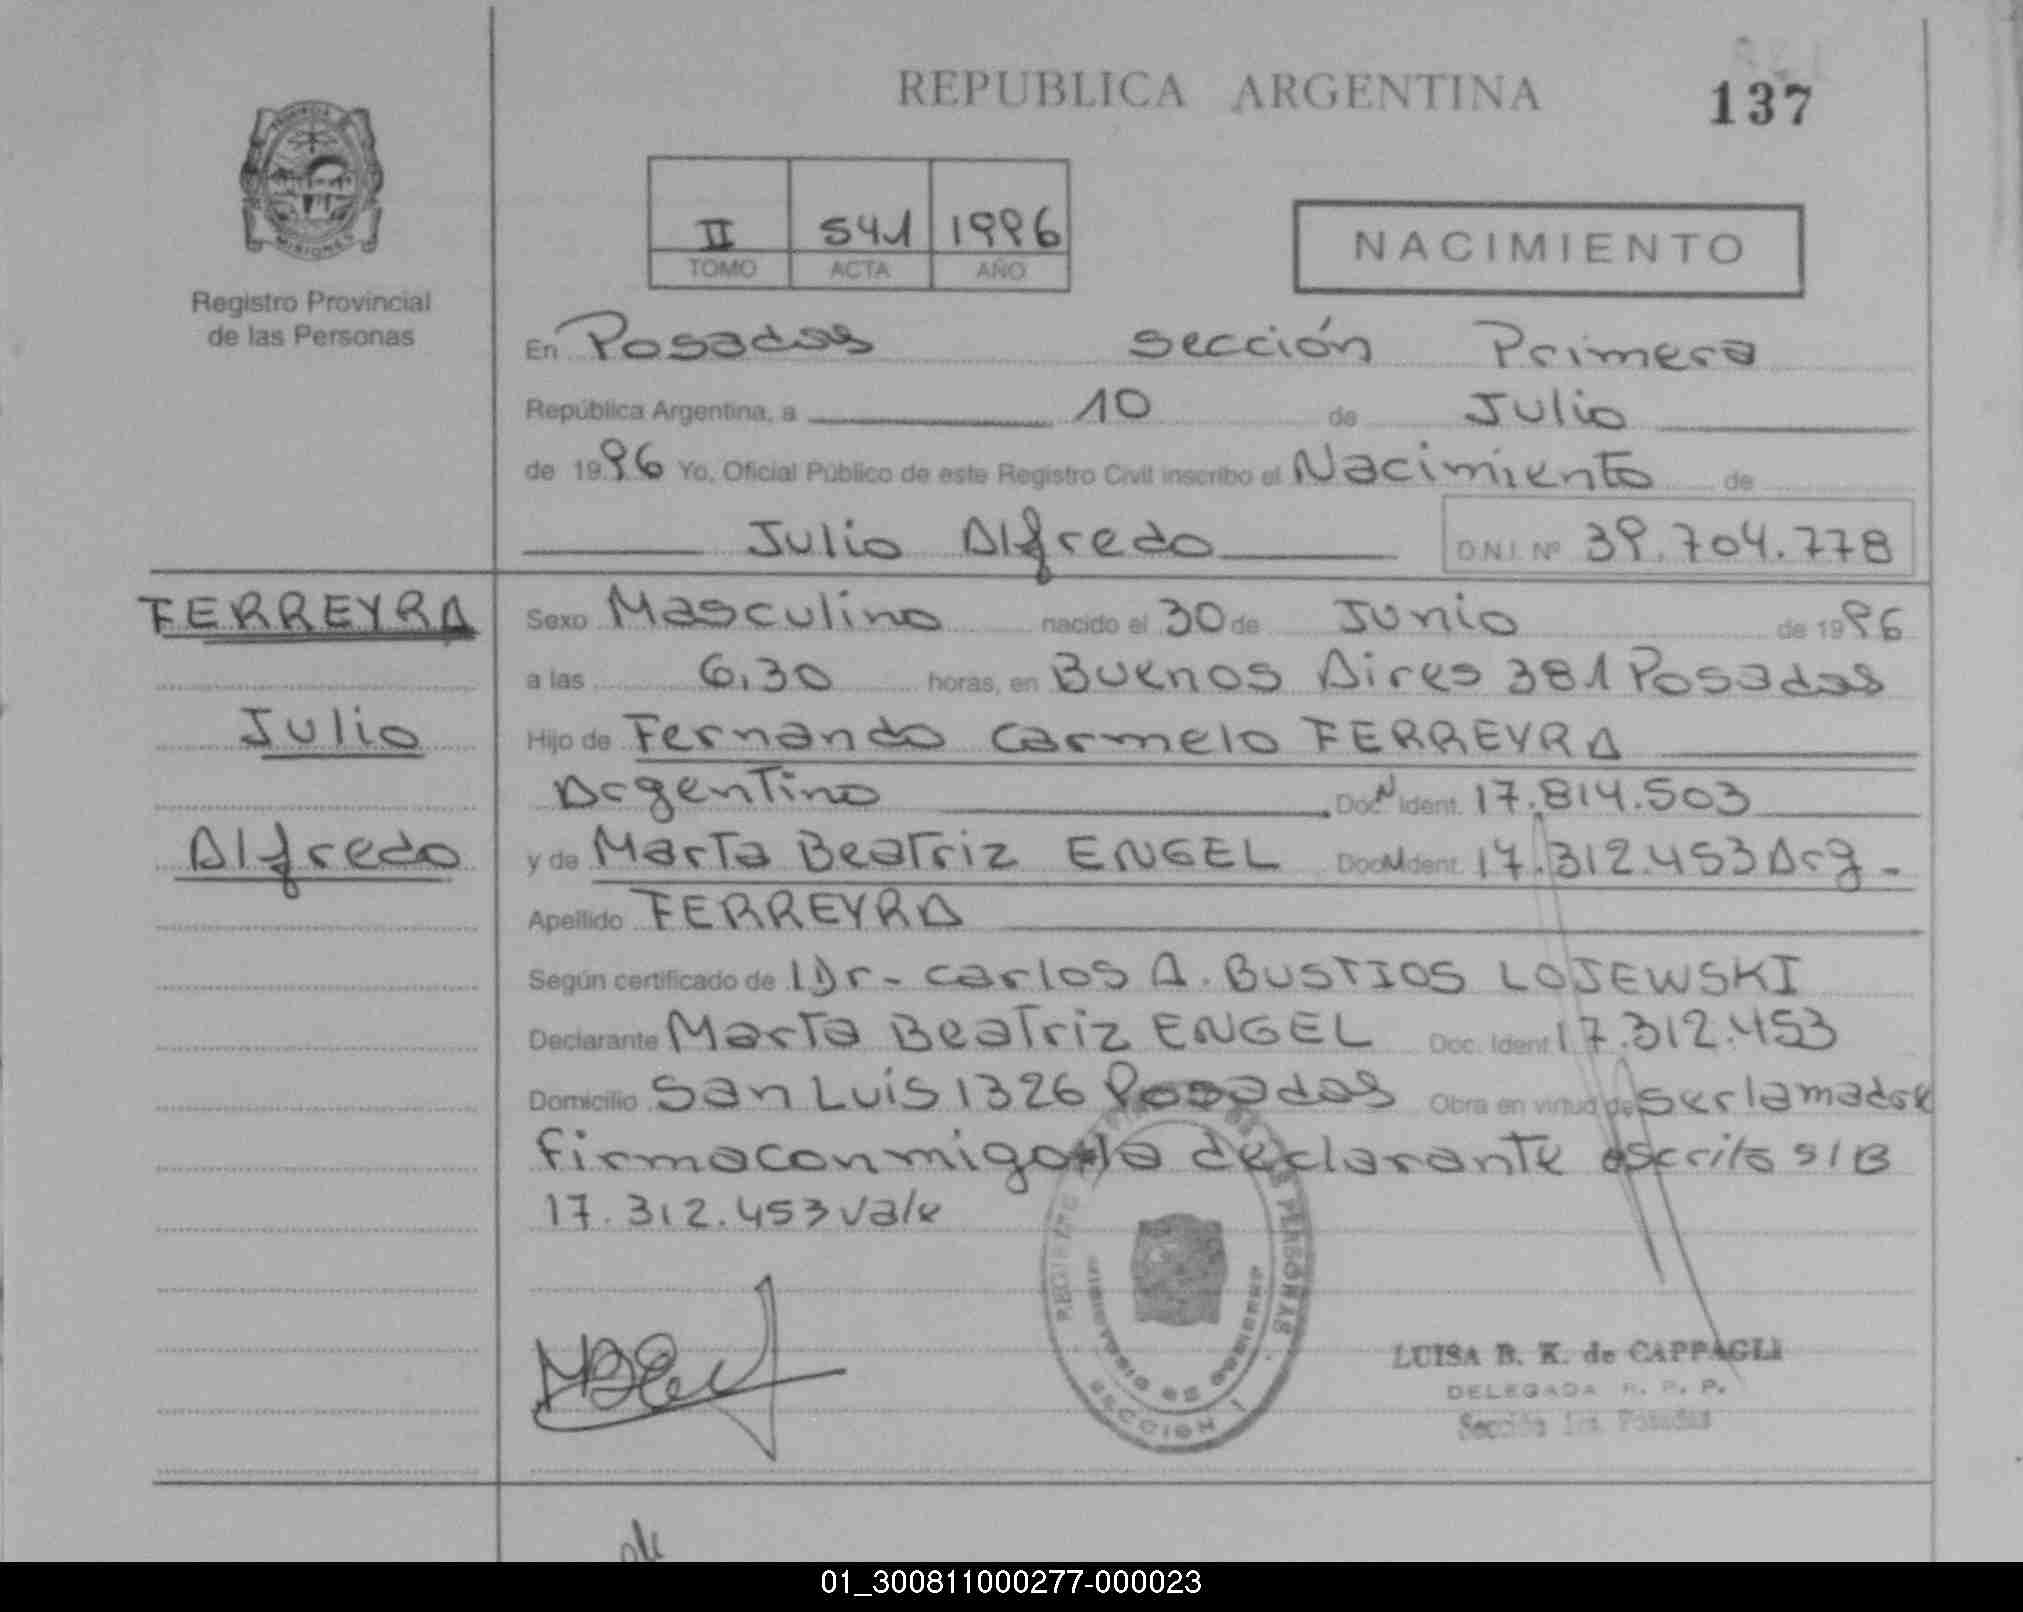 REPUBLICA ARGENTINA
137
PROVINCIA
MISIONES
Registro Provincial
de las Personas
II 541 1996
TOMO ACTA AÑO
NACIMIENTO
En Posadas sección Primera
República Argentina, a 10 de Julio
de 1996 Yo, Oficial Público de este Registro Civil inscribo el Nacimiento de
Julio Alfredo D.N.I. Nº 39.704.778
FERREYRA
Julio
Alfredo
Sexo Masculino nacido el 30 de Junio de 1996
a las 6,30 horas, en Buenos Aires 381 Posadas
Hijo de Fernando Carmelo FERREYRA
Argentino Doc N Ident. 17.814.503
y de Marta Beatriz ENGEL Doc N Ident. 17.312.453 Arg -
Apellido FERREYRA
Según certificado de Dr- Carlos A. BUSTIOS LOJEWSKI
Declarante Marta Beatriz ENGEL Doc. Ident 17.312.453
Domicilio San Luis 1326 Posadas Obra en virtud de ser la madre
firma conmigo la declarante escrito s/B
17.312.453 vale
REGISTRO PERSONAS
SECCION 1
LUISA B. K. de CAPPAGLI
DELEGADA R. P. P.
Sección 1ra. Posadas
01_300811000277-000023